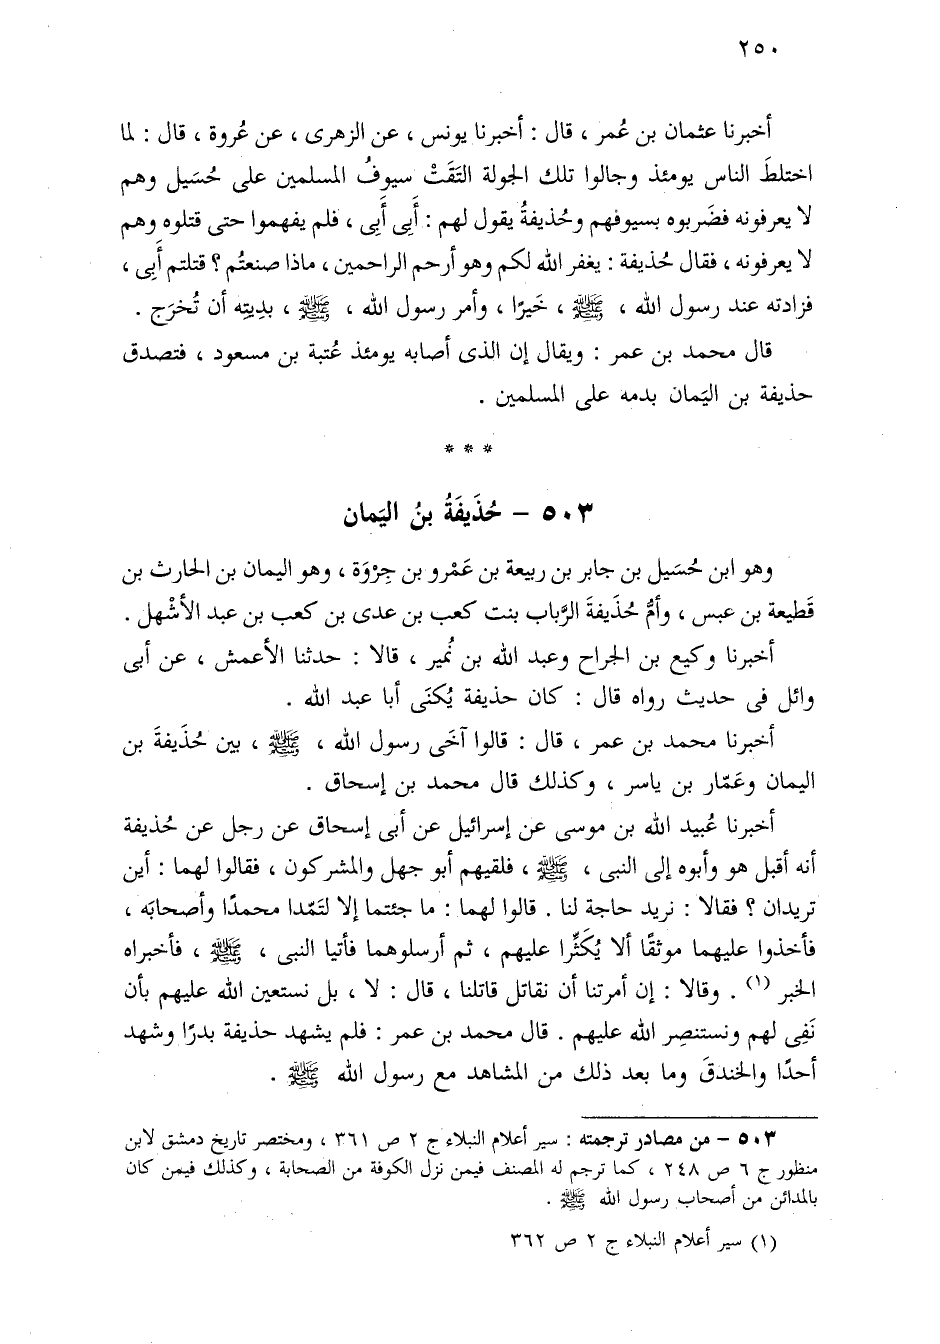 ٢٥٠
أخبرنا عثمان بن عُمر ، قال : أخبرنا يونس ، عن الزهرى ، عن عُروة ، قال : لما
اختلطَ الناس يومئذ وجالوا تلك الجولة التَقَتْ سيوفُ المسلمين على حُسَيل وهم
لا يعرفونه فضَربوه بسيوفهم وحُذيفةُ يقول لهم : أَبِى أَبِى ، فلم يفهموا حتى قتلوه وهم
لا يعرفونه ، فقال حُذيفة : يغفر الله لكم وهو أرحم الراحمين ، ماذا صنعتُم ؟ قتلتم أَبِى ،
فزادته عند رسول الله ، ﷺ ، خَيرًا ، وأمر رسول الله ، ﷺ ، بدِيتِه أن تُخرَج .
قال محمد بن عمر : ويقال إن الذى أصابه يومئذ عُتبة بن مسعود ، فتصدق
حذيفة بن اليَمان بدمه على المسلمين .
* * *
٥٠٣ – حُذَيفَةُ بنُ اليَمان
وهو ابن حُسَيل بن جابر بن ربيعة بن عَمْرو بن جِرْوَة ، وهو اليمان بن الحارث بن
قَطيعة بن عبس ، وأمُّ حُذَيفةَ الرَّباب بنت كعب بن عدى بن كعب بن عبد الأشْهل .
أخبرنا وكيع بن الجراح وعبد الله بن نُمير ، قالا : حدثنا الأعمش ، عن أبى
وائل فى حديث رواه قال : كان حذيفة يُكنَى أبا عبد الله .
أخبرنا محمد بن عمر ، قال : قالوا آخَى رسول الله ، ﷺ ، بين حُذَيفةَ بن
اليمان وعَمّار بن ياسر ، وكذلك قال محمد بن إسحاق .
أخبرنا عُبيد الله بن موسى عن إسرائيل عن أبى إسحاق عن رجل عن حُذيفة
أنه أقبل هو وأبوه إلى النبى ، ﷺ ، فلقيهم أبو جهل والمشركون ، فقالوا لهما : أين
تريدان ؟ فقالا : نريد حاجة لنا . قالوا لهما : ما جئتما إلا لتَمّدا محمدًا وأصحابَه ،
فأخذوا عليهما موثقًا ألا يُكَثِّرا عليهم ، ثم أرسلوهما فأتيا النبى ، ﷺ ، فأخبراه
الخبر (١) . وقالا : إن أمرتنا أن نقاتل قاتلنا ، قال : لا ، بل نستعين الله عليهم بأن
نَفِى لهم ونستنصِر الله عليهم . قال محمد بن عمر : فلم يشهد حذيفة بدرًا وشهد
أحدًا والخندقَ وما بعد ذلك من المشاهد مع رسول الله ﷺ .
٥٠٣ – من مصادر ترجمته : سير أعلام النبلاء ج ٢ ص ٣٦١ ، ومختصر تاريخ دمشق لابن
منظور ج ٦ ص ٢٤٨ ، كما ترجم له المصنف فيمن نزل الكوفة من الصحابة ، وكذلك فيمن كان
بالمدائن من أصحاب رسول الله ﷺ .
(١) سير أعلام النبلاء ج ٢ ص ٣٦٢